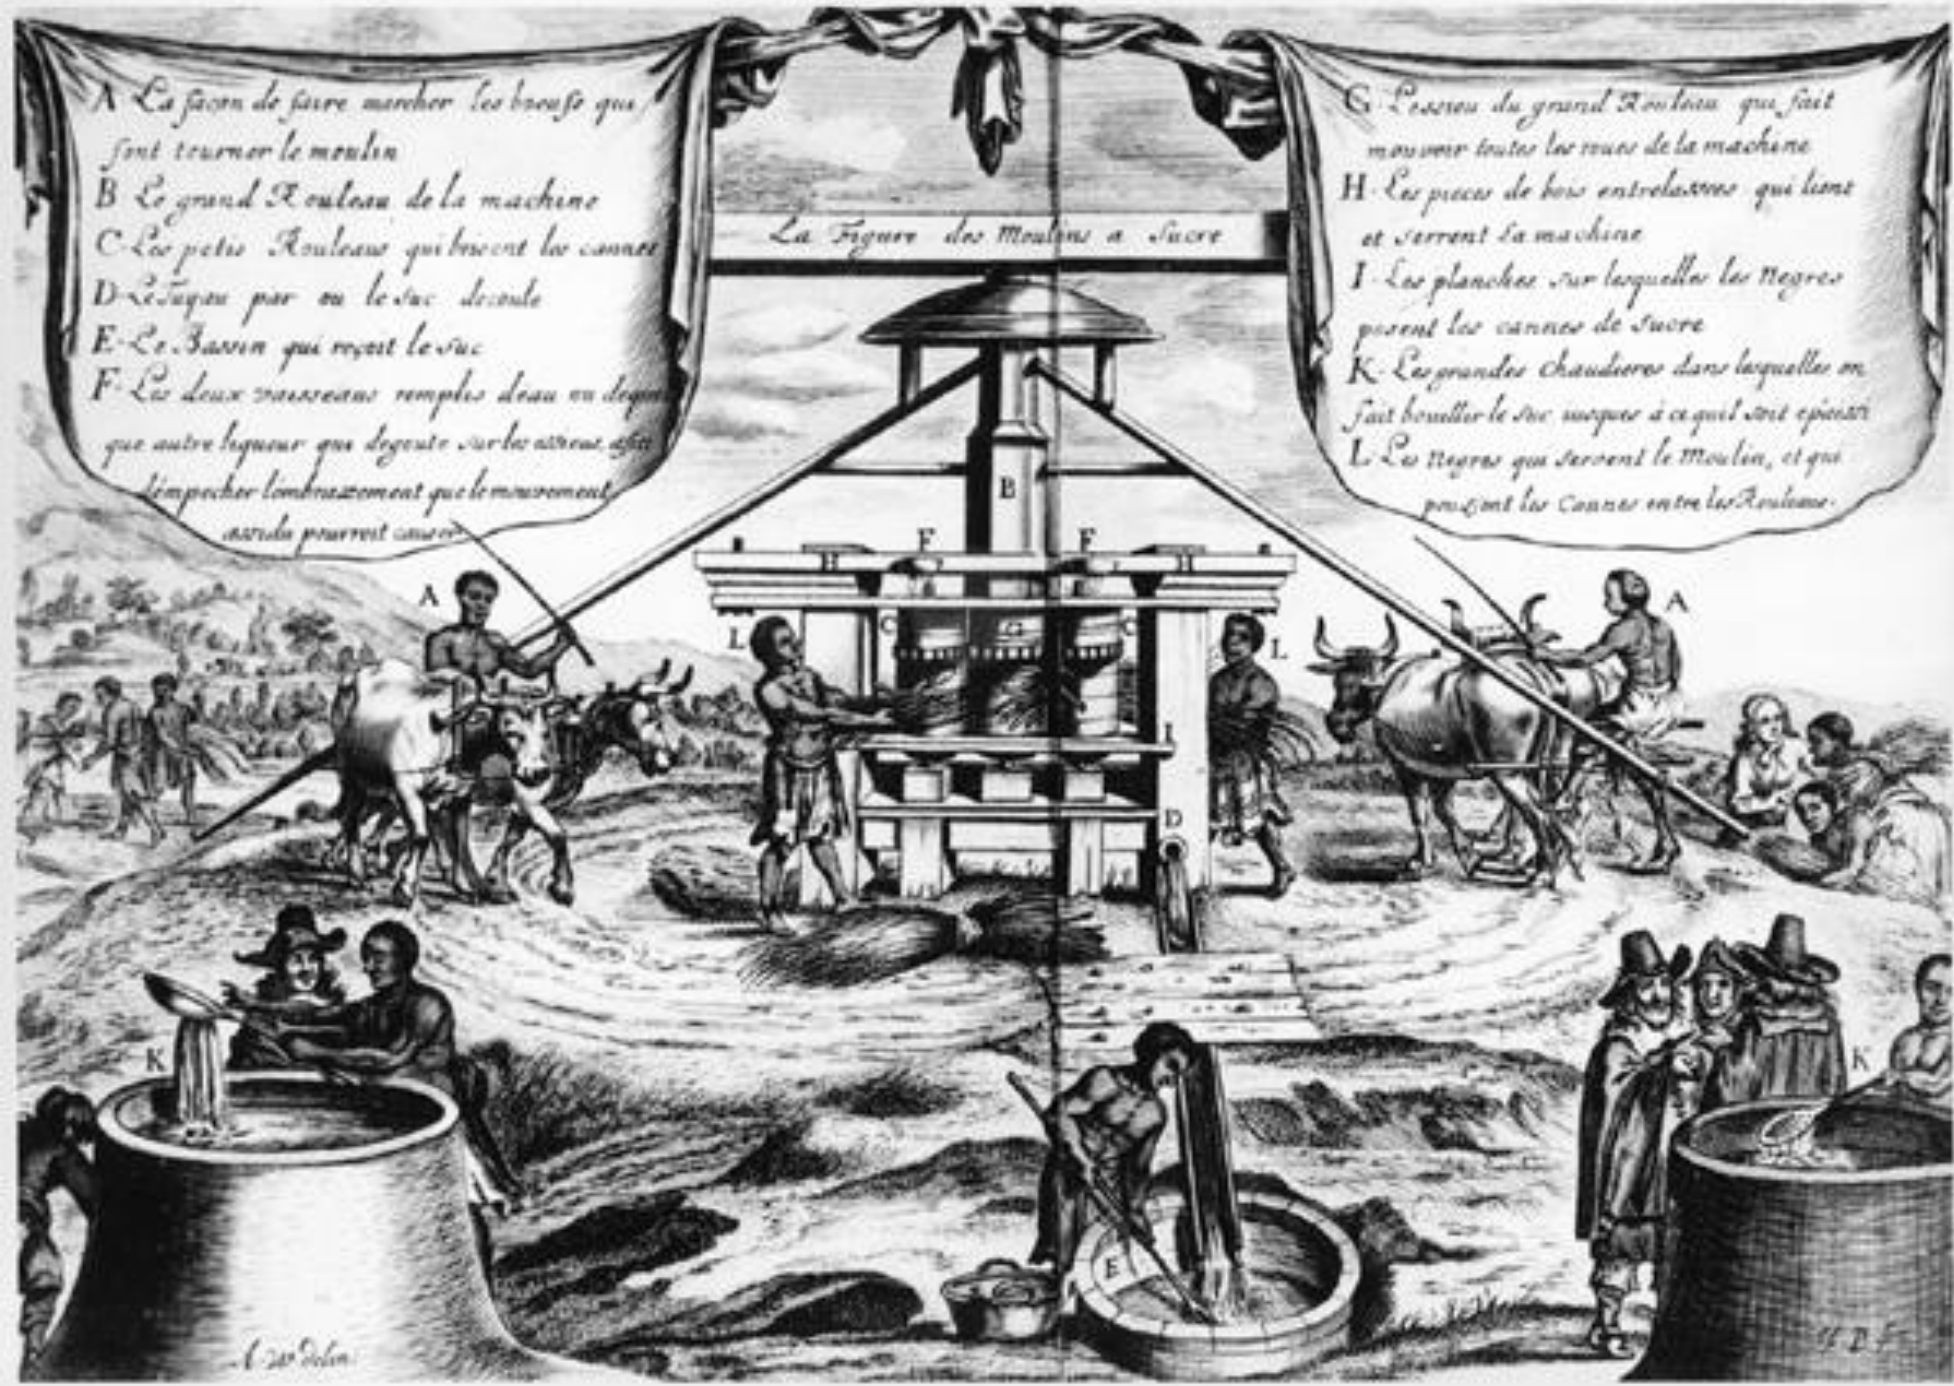 A La façon de faire marcher les boeufs qui
font tourner le moulin
B Le grand Rouleau de la machine
C Les petis Rouleaus qui brisent les cannes
D Le Tuyau par ou le suc decoule
E Le Bassin qui reçoit le suc
F Les deux vaisseaus remplis deau ou de quel
que autre liqueur qui degoute sur les essieus, afin
dempecher lembrazement que le mouvement
assidu pourroit causer
La Figure des Moulins a Sucre
G Lessieu du grand Rouleau qui fait
mouvoir toutes les roues de la machine
H Les pieces de bois entrelassees qui lient
et serrent la machine
I Les planches sur lesquelles les Negres
posent les cannes de sucre
K Les grandes Chaudieres dans lesquelles on
fait bouillir le suc jusques à ce quil soit epaissi
L Les Negres qui servent le Moulin, et qui
poussent les Cannes entre les Rouleaus.
B
F F
H H
A A
L C G C L
I
D
K K
E
delin